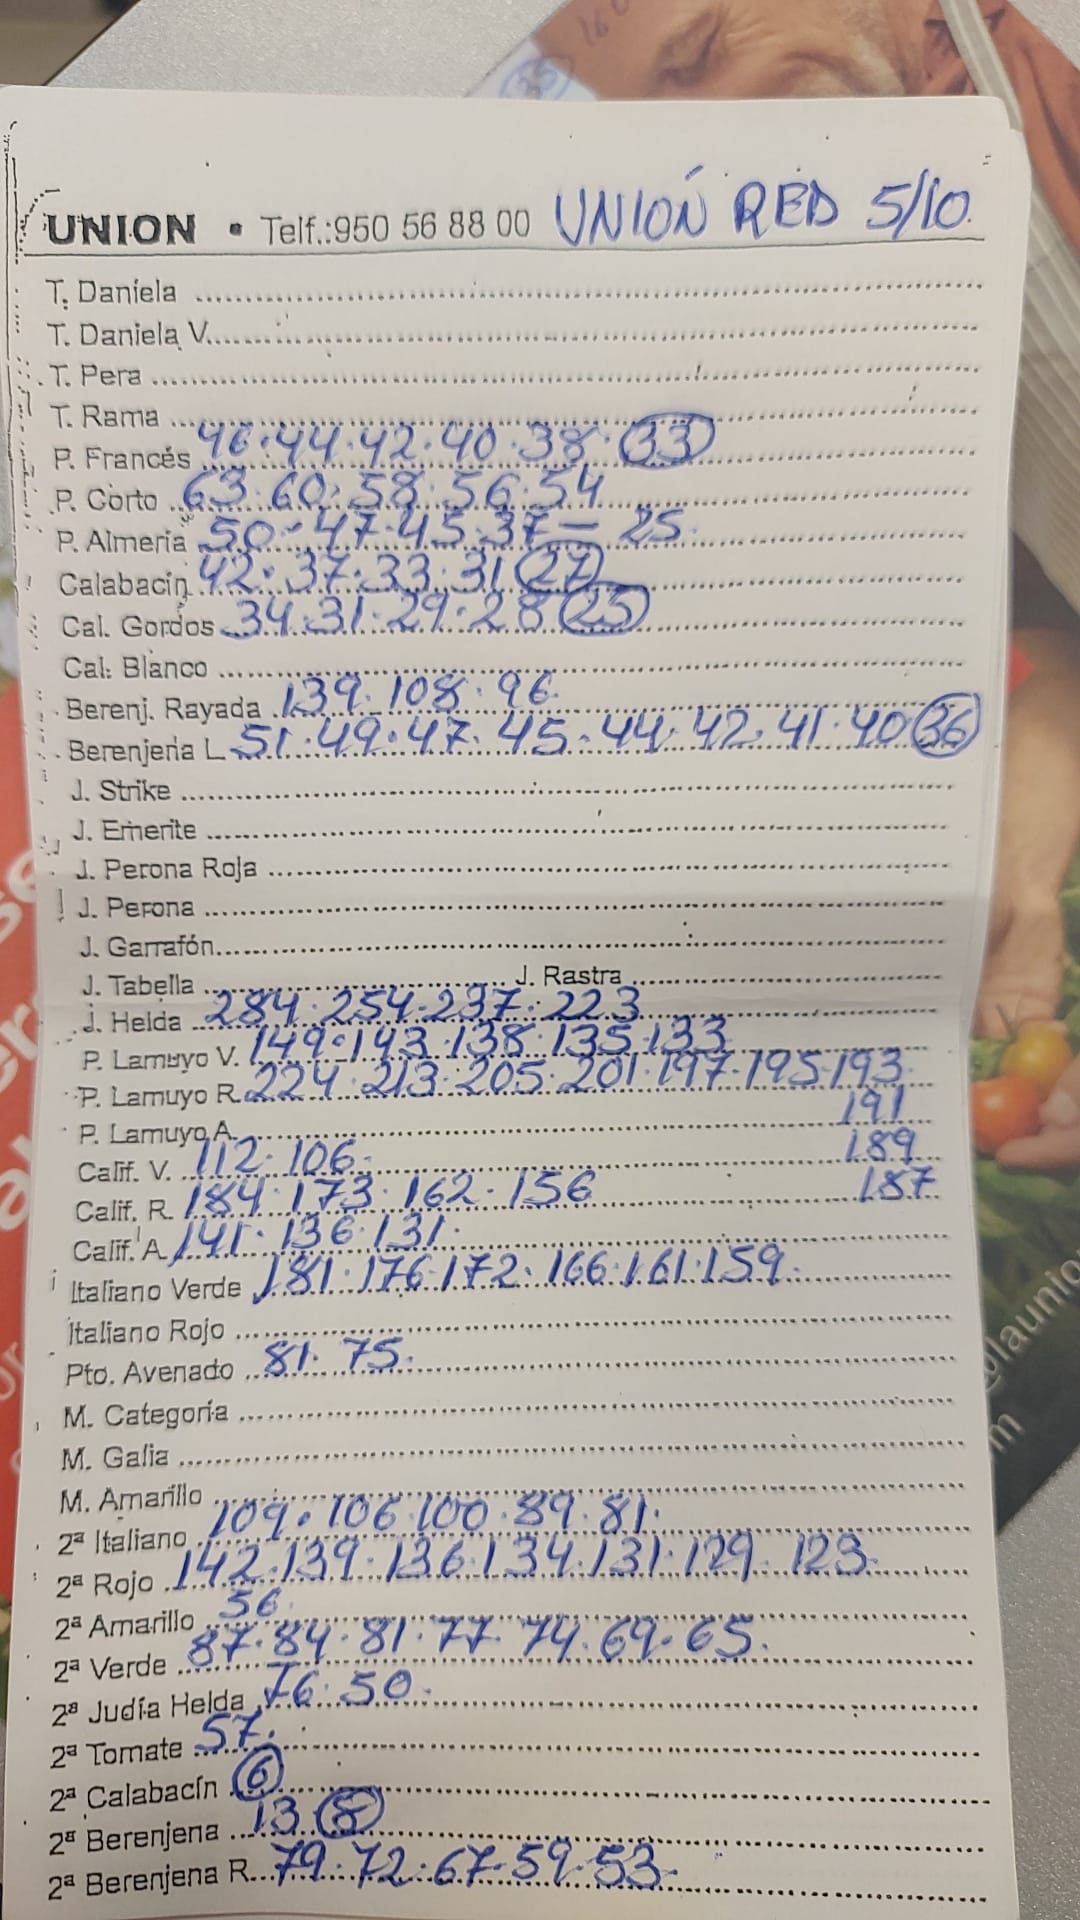 UNION • Telf.:950 56 88 00 UNIÓN RED 5/10.
T. Daniela
T. Daniela V.
T. Pera
T. Rama
P. Francés 46·44·42·40·38·(33)
P. Corto 63·60·58·56·54
P. Almería 50-47·45·37— 25.
Calabacín 42·37·33·31(27)
Cal. Gordos 34·31·29·28(25)
Cal. Blanco
Berenj. Rayada 139·108·96.
Berenjena L. 51·49·47·45·44·42·41·40(36)
J. Strike
J. Emerite
J. Perona Roja
J. Perona
J. Garrafón
J. Tabella J. Rastra
J. Helda 284·254·237·223
P. Lamuyo V. 149·143·138·135·133
P. Lamuyo R. 224·213·205·201·197·195·193
P. Lamuyo A. 191
Calif. V. 112·106. 189
Calif. R. 184·173·162·156 187
Calif. A. 141·136·131.
Italiano Verde 181·176·172·166·161·159.
Italiano Rojo
Pto. Avenado 81·75.
M. Categoría
M. Galia
M. Amarillo
2ª Italiano 109·106·100·89·81.
2ª Rojo 142·139·136·134·131·129·123.
2ª Amarillo 56
2ª Verde 87·84·81·77·74·69·65.
2ª Judía Helda 76·50.
2ª Tomate 57.
2ª Calabacín (6)
2ª Berenjena 13 (8)
2ª Berenjena R. 79·72·67·59·53.
@launio